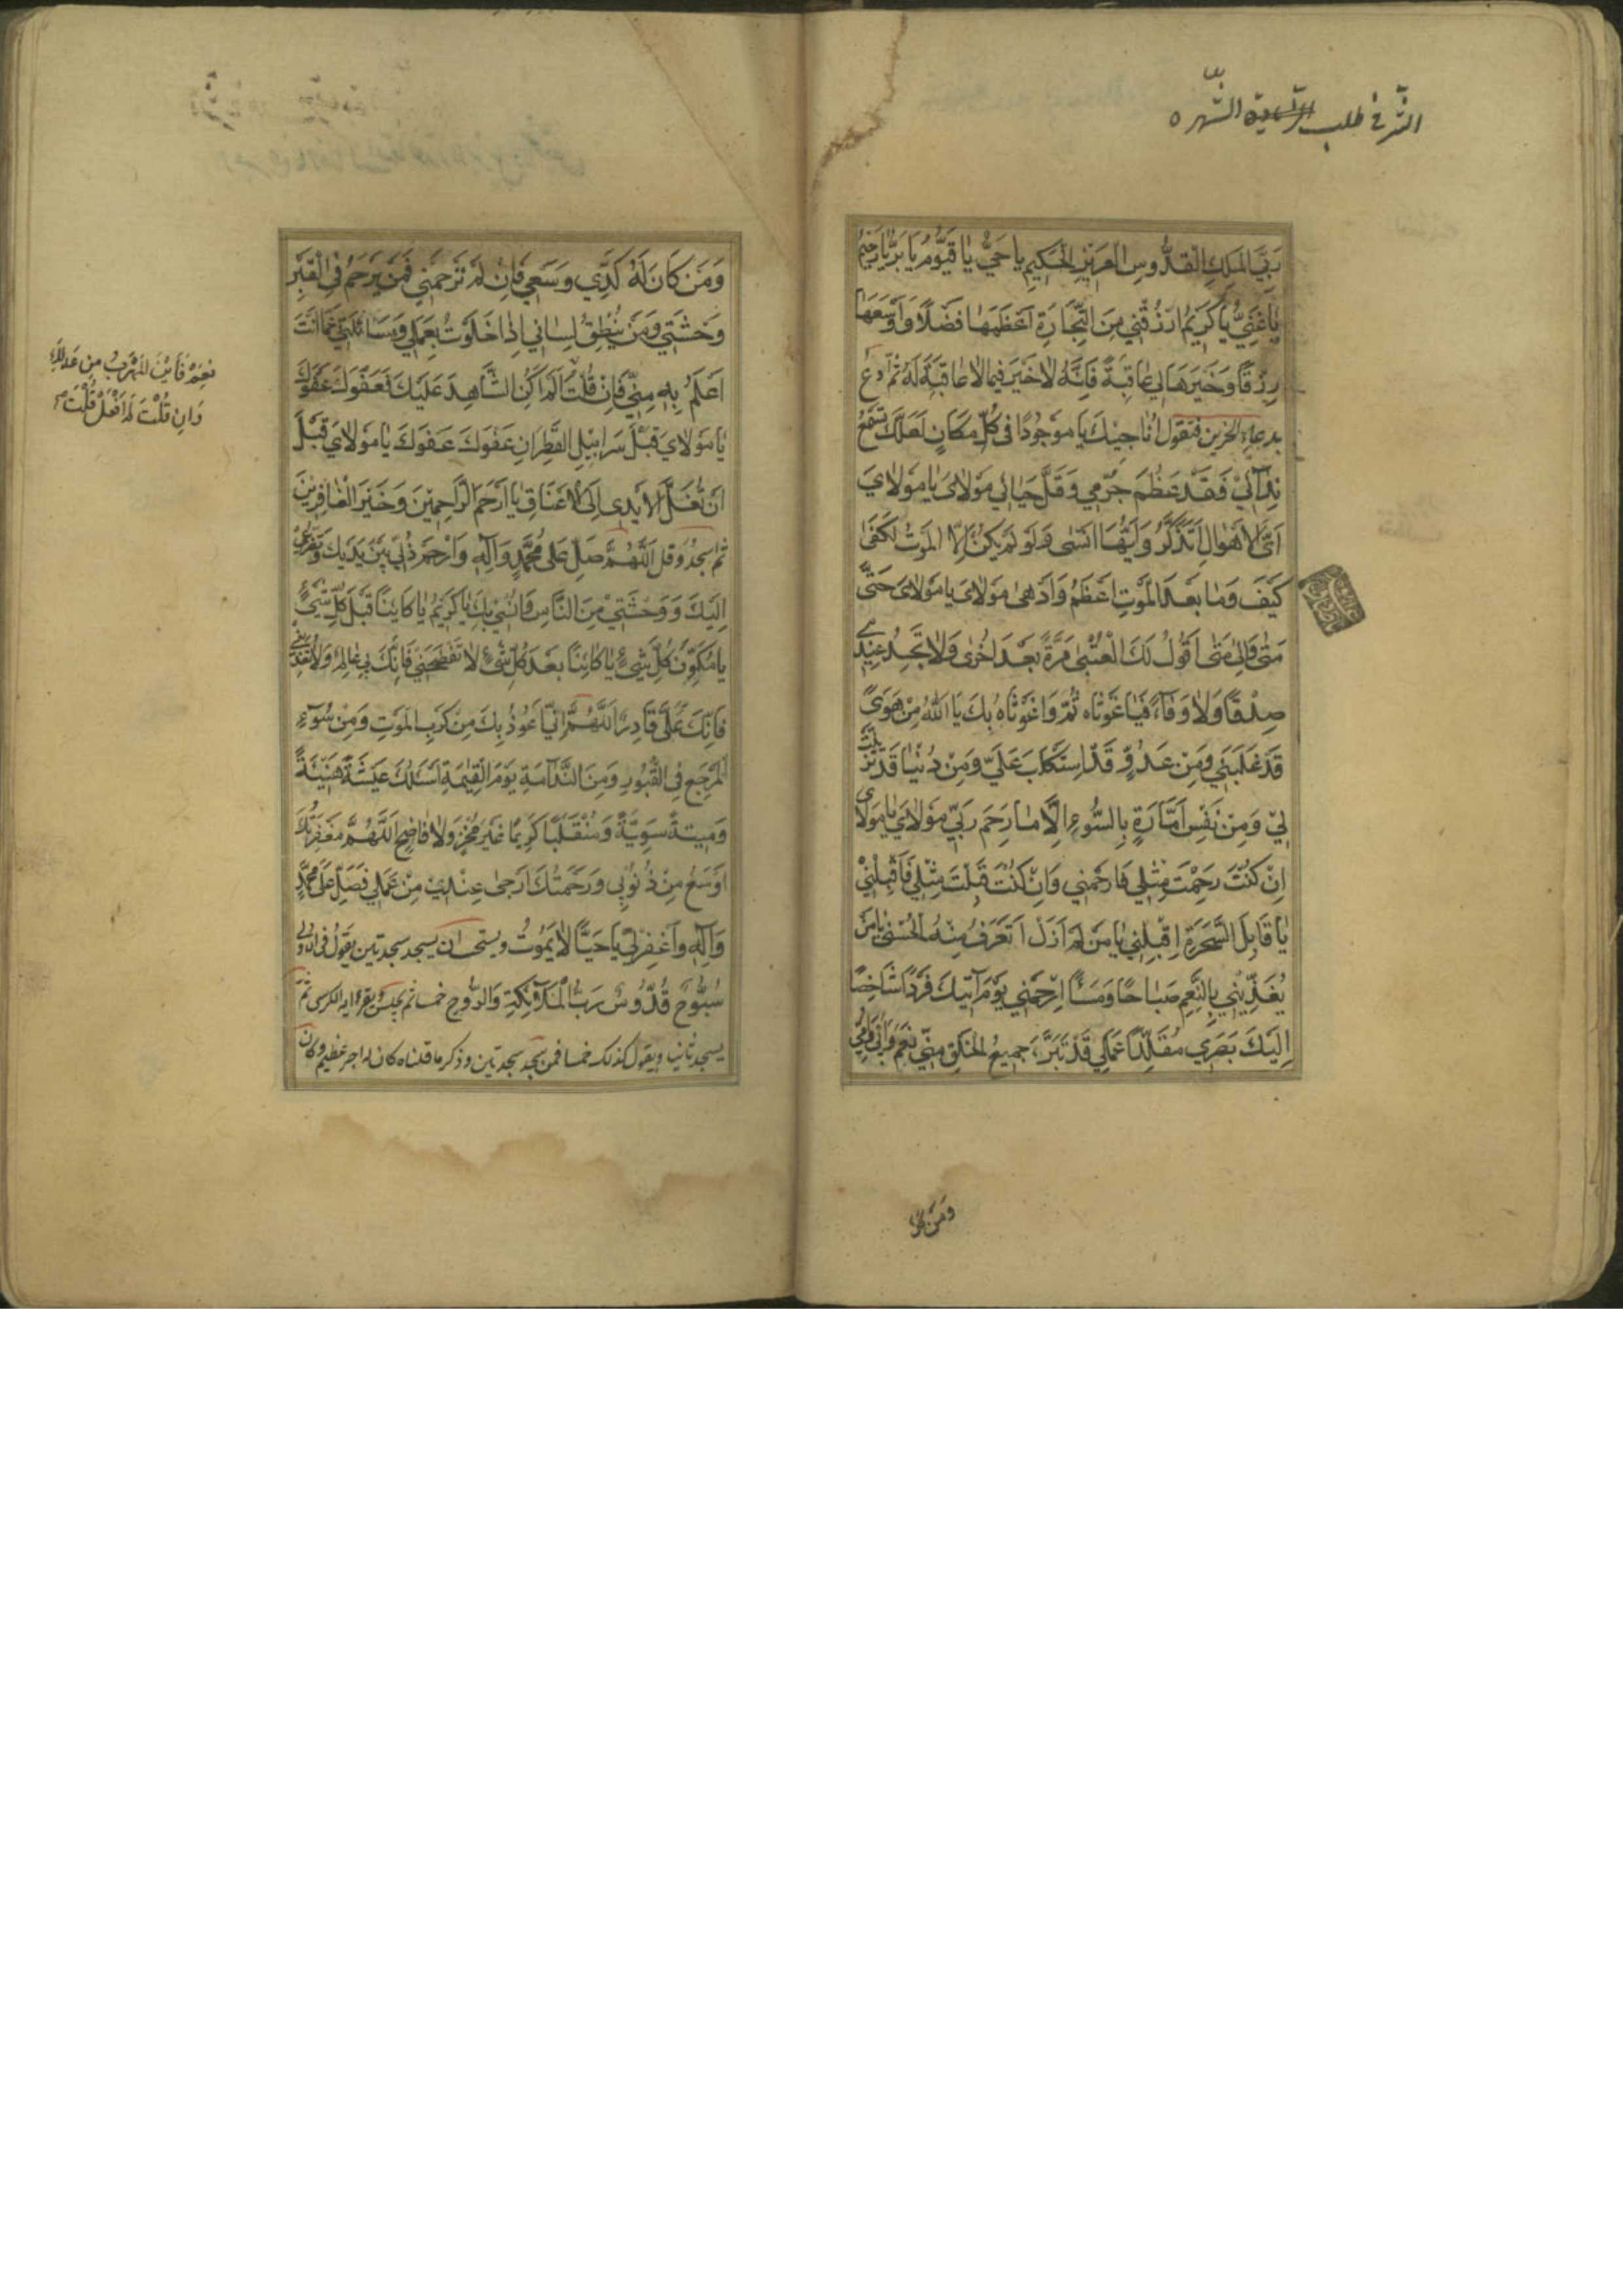 الشر في طلب الشهره
رَبِّيَ المَلِكِ القُدُّوسِ العَزِيزِ الحَكِيمِ يا حَيُّ يا قَيُّومُ يا بَرُّ يا رَحِيمُ
يا غَنِيُّ يا كَرِيمُ ارْزُقْنِي مِنَ التِّجَارَةِ اَعْظَمَهَا فَضْلًا وَاَوْسَعَهَا
رِزْقًا وَخَيْرَهَا لِي عَاقِبَةً فَاِنَّهُ لَا خَيْرَ فِيمَا لَا عَاقِبَةَ لَهُ ثم ادع
بدعاء الحزين فتقول اُنَاجِيكَ يَا مَوْجُودًا فِي كُلِّ مَكَانٍ لَعَلَّكَ تَسْمَعُ
نِدَائِي فَقَدْ عَظُمَ جُرْمِي وَقَلَّ حَيَائِي مَوْلَايَ يَا مَوْلَايَ
اَيَّ الْاَهْوَالِ اَتَذَكَّرُ وَاَيَّهَا اَنْسَى وَلَوْ لَمْ يَكُنْ اِلَّا الْمَوْتُ لَكَفَى
كَيْفَ وَمَا بَعْدَ الْمَوْتِ اَعْظَمُ وَاَدْهَى مَوْلَايَ يَا مَوْلَايَ حَتَّى
مَتَى وَاِلَى مَتَى اَقُولُ لَكَ الْعُتْبَى مَرَّةً بَعْدَ اُخْرَى وَلَا تَجِدُ عِنْدِي
صِدْقًا وَلَا وَفَاءً فَيَا غَوْثَاه ثُمَّ وَا غَوْثَاهُ بِكَ يَا اَللهُ مِنْ هَوًى
قَدْ غَلَبَنِي وَمِنْ عَدُوٍّ قَدِ اسْتَكْلَبَ عَلَيَّ وَمِنْ دُنْيَا قَدْ تَزَيَّنَتْ
لِي وَمِنْ نَفْسٍ اَمَّارَةٍ بِالسُّوءِ اِلَّا مَا رَحِمَ رَبِّي مَوْلَايَ يَا مَوْلَايَ
اِنْ كُنْتَ رَحِمْتَ مِثْلِي فَارْحَمْنِي وَاِنْ كُنْتَ قَبِلْتَ مِثْلِي فَاقْبَلْنِي
يَا قَابِلَ السَّحَرَةِ اِقْبَلْنِي يَا مَنْ لَمْ اَزَلْ اَتَعَرَّفُ مِنْهُ الْحُسْنَى يَا مَنْ
يُغَذِّينِي بِالنِّعَمِ صَبَاحًا وَمَسَاءً اِرْحَمْنِي يَوْمَ آتِيكَ فَرْدًا شَاخِصًا
اِلَيْكَ بَصَرِي مُقَلَّدًا عَمَلِي قَدْ تَبَرَّءَ جَمِيعُ الْخَلْقِ مِنِّي نَعَمْ وَاَبِي وَاُمِّي
وَمَنْ كان
وَمَنْ كَانَ لَهُ كَدِّي وَسَعْيِي فَاِنْ لَمْ تَرْحَمْنِي فَمَنْ يَرْحَمُ فِي الْقَبْرِ
وَحْشَتِي وَمَنْ يُنْطِقُ لِسَانِي اِذَا خَلَوْتُ بِعَمَلِي وَسَائَلْتَنِي عَمَّا اَنْتَ
اَعْلَمُ بِهِ مِنِّي فَاِنْ قُلْتَ اَلَمْ اَكُنِ الشَّاهِدَ عَلَيْكَ فَعَفْوَكَ عَفْوَكَ
يَا مَوْلَايَ قَبْلَ سَرَابِيلِ الْقَطِرَانِ عَفْوَكَ عَفْوَكَ يَا مَوْلَايَ قَبْلَ
اَنْ تُغَلَّ الْاَيْدِي اِلَى الْاَعْنَاقِ يَا اَرْحَمَ الرَّاحِمِينَ وَخَيْرَ الْغَافِرِينَ
ثم اسجد وقل اَللّٰهُمَّ صَلِّ عَلَى مُحَمَّدٍ وَآلِهِ وَارْحَمْ ذُلِّي بَيْنَ يَدَيْكَ وَتَضَرُّعِي
اِلَيْكَ وَوَحْشَتِي مِنَ النَّاسِ وَاُنْسِي بِكَ يَا كَرِيمُ يَا كَائِنًا قَبْلَ كُلِّ شَيْءٍ
يَا مُكَوِّنَ كُلِّ شَيْءٍ يَا كَائِنًا بَعْدَ كُلِّ شَيْءٍ لَا تَفْضَحْنِي فَاِنَّكَ بِي عَالِمٌ وَلَا تُعَذِّبْنِي
فَاِنَّكَ عَلَيَّ قَادِرٌ اَللّٰهُمَّ اِنِّي اَعُوذُ بِكَ مِنْ كَرْبِ الْمَوْتِ وَمِنْ سُوءِ
الْمَرْجِعِ فِي الْقُبُورِ وَمِنَ النَّدَامَةِ يَوْمَ الْقِيٰمَةِ اَسْئَلُكَ عِيشَةً هَنِيئَةً
وَمِيتَةً سَوِيَّةً وَمُنْقَلَبًا كَرِيمًا غَيْرَ مُخْزٍ وَلَا فَاضِحٍ اَللّٰهُمَّ مَغْفِرَتُكَ
اَوْسَعُ مِنْ ذُنُوبِي وَرَحْمَتُكَ اَرْجَى عِنْدِي مِنْ عَمَلِي فَصَلِّ عَلَى مُحَمَّدٍ
وَآلِهِ وَاغْفِرْ لِي يَا حَيًّا لَا يَمُوتُ ويستحب ان يسجد سجدتين يقول في الاولى
سُبُّوحٌ قُدُّوسٌ رَبُّ الْمَلَائِكَةِ وَالرُّوحِ خمسا ثم يجلس ويقرء اية الكرسي ثم
يسجد ثانيا ويقول كذلك خمسا فمن سجد سجدتين وذكر ما قلناه كان له اجر عظيم وكان
نَعَمْ فَاَيْنَ الْمَهْرَبُ مِنْ عَدْلِكَ
وَاِنْ قُلْتُ لَمْ اَفْعَلْ قُلْتَ